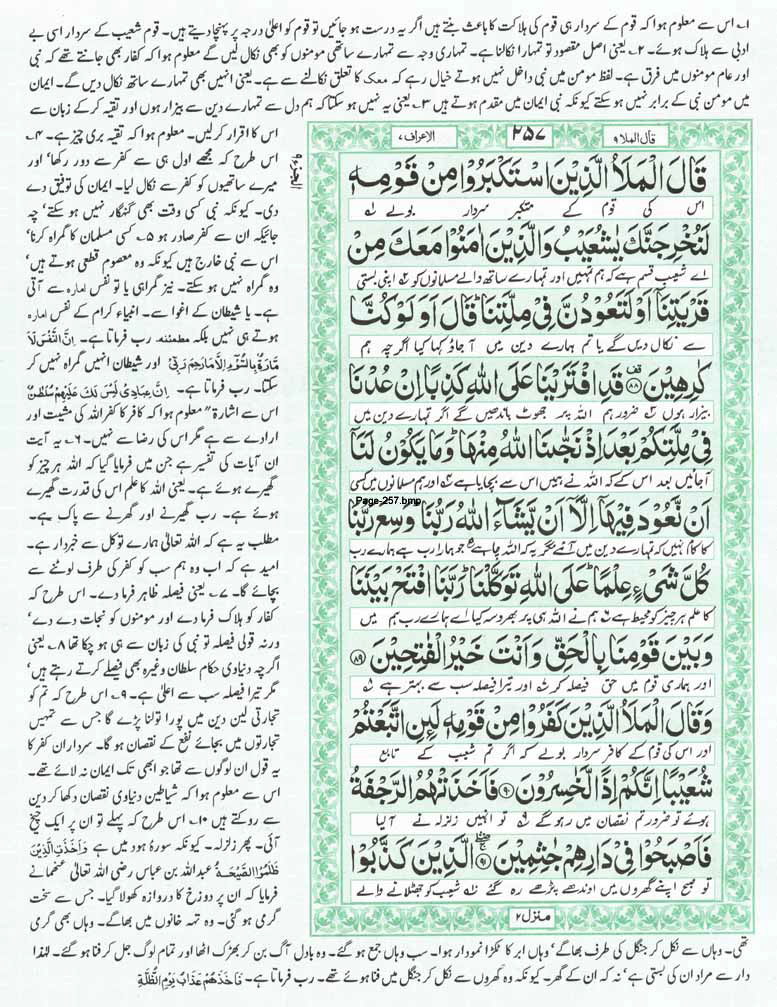 ۱؎ اس سے معلوم ہوا کہ قوم کے سردار ہی قوم کی ہلاکت کا باعث بنتے ہیں اگر یہ درست ہو جائیں تو قوم کو اعلیٰ درجہ پر پہنچا دیتے ہیں۔ قوم شعیب کے سردار اسی بے
ادبی سے ہلاک ہوئے۔ ۲؎ یعنی اصل مقصود تو تمہارا نکالنا ہے۔ تمہاری وجہ سے تمہارے ساتھی مومنوں کو بھی نکال لیں گے معلوم ہوا کہ کفار بھی جانتے تھے کہ نبی
اور عام مومنوں میں فرق ہے۔ لفظ مومن میں نبی داخل نہیں ہوتے خیال رہے کہ معک کا تعلق نکالنے سے ہے۔ یعنی انہیں بھی تمہارے ساتھ نکال دیں گے۔ ایمان
میں مومن نبی کے برابر نہیں ہو سکتے کیونکہ نبی ایمان میں مقدم ہوتے ہیں ۳؎ یعنی یہ نہیں ہو سکتا کہ ہم دل سے تمہارے دین سے بیزار ہوں اور تقیہ کر کے زبان سے
قال الملا ۹
۲۵۷
الاعراف ۷
قَالَ الْمَلَأُ الَّذِيْنَ اسْتَكْبَرُوْا مِنْ قَوْمِهٖ
اس کی قوم کے متکبر سردار بولے
لَنُخْرِجَنَّكَ يٰشُعَيْبُ وَالَّذِيْنَ اٰمَنُوْا مَعَكَ مِنْ
اے شعیب قسم ہے کہ ہم تمہیں اور تمہارے ساتھ والے مسلمانوں کو اپنی بستی
قَرْيَتِنَا اَوْ لَتَعُوْدُنَّ فِيْ مِلَّتِنَا ؕ قَالَ اَوَلَوْ كُنَّا
سے نکال دیں گے یا تم ہمارے دین میں آجاؤ کہا کیا اگرچہ ہم
كٰرِهِيْنَ ﴿۸۸﴾ قَدِ افْتَرَيْنَا عَلَى اللّٰهِ كَذِبًا اِنْ عُدْنَا
بیزار ہوں ضرور ہم اللہ پر جھوٹ باندھیں گے اگر تمہارے دین میں
فِيْ مِلَّتِكُمْ بَعْدَ اِذْ نَجّٰىنَا اللّٰهُ مِنْهَا ؕ وَمَا يَكُوْنُ لَنَاۤ
آجائیں بعد اس کے کہ اللہ نے ہمیں اس سے بچایا ہے اور ہم مسلمانوں میں کسی
Page_257.bmp
اَنْ نَّعُوْدَ فِيْهَاۤ اِلَّاۤ اَنْ يَّشَآءَ اللّٰهُ رَبُّنَا ؕ وَسِعَ رَبُّنَا
کا کام نہیں کہ تمہارے دین میں آئے مگر یہ کہ اللہ چاہے جو ہمارا رب ہے ہمارے رب
كُلَّ شَيْءٍ عِلْمًا ؕ عَلَى اللّٰهِ تَوَكَّلْنَا ؕ رَبَّنَا افْتَحْ بَيْنَنَا
کا علم ہر چیز کو محیط ہے ہم نے اللہ ہی پر بھروسہ کیا اے ہمارے رب ہم میں
وَبَيْنَ قَوْمِنَا بِالْحَقِّ وَاَنْتَ خَيْرُ الْفٰتِحِيْنَ ﴿۸۹﴾
اور ہماری قوم میں حق فیصلہ کر اور تیرا فیصلہ سب سے بہتر ہے
وَقَالَ الْمَلَأُ الَّذِيْنَ كَفَرُوْا مِنْ قَوْمِهٖ لَئِنِ اتَّبَعْتُمْ
اور اس کی قوم کے کافر سردار بولے کہ اگر تم شعیب کے تابع
شُعَيْبًا اِنَّكُمْ اِذًا لَّخٰسِرُوْنَ ﴿۹۰﴾ فَاَخَذَتْهُمُ الرَّجْفَةُ
ہوئے تو ضرور تم نقصان میں رہو گے تو انہیں زلزلہ نے آلیا
فَاَصْبَحُوْا فِيْ دَارِهِمْ جٰثِمِيْنَ ﴿۹۱﴾ الَّذِيْنَ كَذَّبُوْا
تو صبح اپنے گھروں میں اوندھے پڑے رہ گئے شعیب کو جھٹلانے والے
منزل ۲
اس کا اقرار کر لیں۔ معلوم ہوا کہ تقیہ بری چیز ہے۔ ۴؎
اس طرح کہ مجھے اول ہی سے کفر سے دور رکھا' اور
میرے ساتھیوں کو کفر سے نکال لیا۔ ایمان کی توفیق دے
دی۔ کیونکہ نبی کسی وقت بھی گنہگار نہیں ہو سکتے' چہ
جائیکہ ان سے کفر صادر ہو ۵؎ کسی مسلمان کا گمراہ کرنا'
اس سے نبی خارج ہیں کیونکہ وہ معصوم قطعی ہوتے ہیں'
وہ گمراہ نہیں ہو سکتے۔ نیز گمراہی یا تو نفس امارہ سے آتی
ہے۔ یا شیطان کے اغوا سے۔ انبیاء کرام کے نفس امارہ
ہوتے ہی نہیں بلکہ مطمئنہ رب فرماتا ہے۔ اِنَّ النَّفْسَ لَاَ
مَّارَةٌۢ بِالسُّوْٓءِ اِلَّا مَا رَحِمَ رَبِّيْ اور شیطان انہیں گمراہ نہیں کر
سکتا۔ رب فرماتا ہے۔ اِنَّ عِبَادِيْ لَيْسَ لَكَ عَلَيْهِمْ سُلْطٰنٌ
اس سے اشارۃ" معلوم ہوا کہ کافر کا کفر اللہ کی مشیت اور
ارادے سے ہے مگر اس کی رضا سے نہیں۔ ۶؎ یہ آیت
ان آیات کی تفسیر ہے جن میں فرمایا گیا کہ اللہ ہر چیز کو
گھیرے ہوئے ہے۔ یعنی اللہ کا علم اس کی قدرت گھیرے
ہوئے ہے۔ رب گھیرنے اور گھرنے سے پاک ہے۔
مطلب یہ ہے کہ اللہ تعالیٰ ہمارے توکل سے خبردار ہے۔
امید ہے کہ اب وہ ہم سب کو کفر کی طرف لوٹنے سے
بچائے گا۔ ۷؎ یعنی فیصلہ ظاہر فرما دے۔ اس طرح کہ
کفار کو ہلاک فرما دے اور مومنوں کو نجات دے دے'
ورنہ قولی فیصلہ تو نبی کی زبان سے ہی ہو چکا تھا ۸؎ یعنی
اگرچہ دنیاوی حکام سلطان وغیرہ بھی فیصلے کرتے رہتے ہیں'
مگر تیرا فیصلہ سب سے اعلیٰ ہے۔ ۹؎ اس طرح کہ تم کو
تجارتی لین دین میں پورا تولنا پڑے گا جس سے تمہیں
تجارتوں میں بجائے نفع کے نقصان ہو گا۔ سرداران کفر کا
یہ قول ان لوگوں سے تھا جو ابھی تک ایمان نہ لائے تھے۔
اس سے معلوم ہوا کہ شیاطین دنیاوی نقصان دکھا کر دین
سے روکتے ہیں ۱۰؎ اس طرح کہ پہلے تو ان پر ایک چیخ
آئی۔ پھر زلزلہ۔ کیونکہ سورۃ ہود میں ہے وَاَخَذَتِ الَّذِيْنَ
ظَلَمُوا الصَّيْحَةُ عبداللہ بن عباس رضی اللہ تعالیٰ عنھما نے
فرمایا کہ ان پر دوزخ کا دروازہ کھولا گیا۔ جس سے سخت
گرمی ہو گئی۔ وہ تہہ خانوں میں بھاگے۔ وہاں بھی گرمی
تھی۔ وہاں سے نکل کر جنگل کی طرف بھاگے' وہاں ابر کا ٹکڑا نمودار ہوا۔ سب وہاں جمع ہو گئے۔ وہ بادل آگ بن کر بھڑک اٹھا اور تمام لوگ جل کر فنا ہو گئے۔ لہٰذا
دار سے مراد ان کی بستی ہے' نہ کہ ان کے گھر۔ کیونکہ وہ گھروں سے نکل کر جنگل میں فنا ہوئے تھے۔ رب فرماتا ہے۔ فَاَخَذَهُمْ عَذَابُ يَوْمِ الظُّلَّةِ